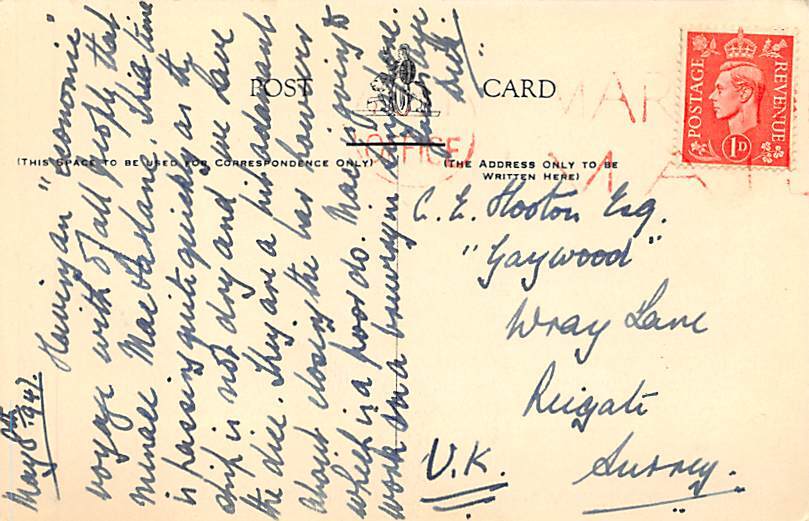 May 8th 1947.
Having an "economic"
voyage with of all people that
minall MacFarlane, this time
is passing quite quickly as the
ship is not dry and we have
the dice. They are a bit adamant
about closing the bar however
which is a poor do. Mac is going to
work in a brewery in
Dick.
POST CARD
(THIS SPACE TO BE USED FOR CORRESPONDENCE ONLY)
(THE ADDRESS ONLY TO BE
WRITTEN HERE)
POSTAGE
REVENUE
1D
OFFICE
MAR
MA
C. E. Hooton Esq.
"Gaywood"
Wray Lane
Reigate
Surrey.
U.K.